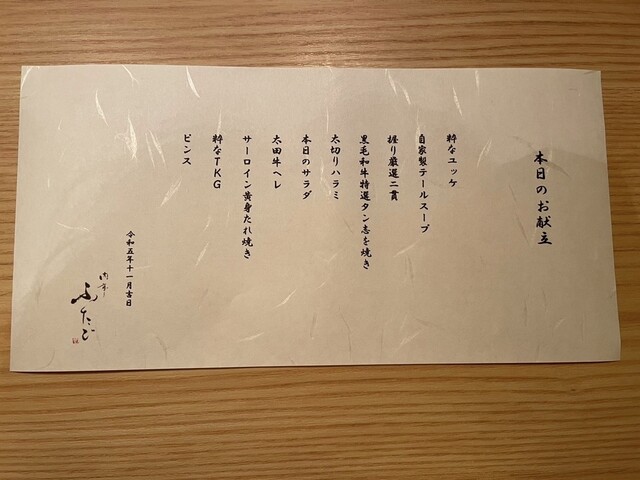 本日のお献立
粋なユッケ
自家製テールスープ
握り厳選二貫
黒毛和牛特選タン志を焼き
太切りハラミ
本日のサラダ
太田牛ヘレ
サーロイン黄身たれ焼き
粋なTKG
ビンス
令和五年十一月吉日
ふたご